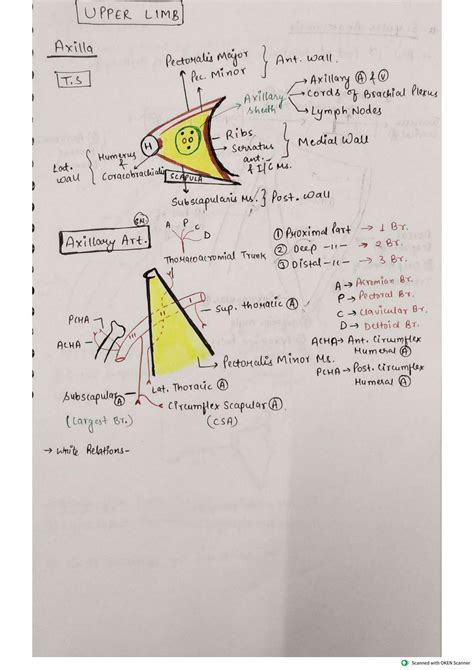 UPPER LIMB
Axilla
T.S
Pectoralis Major
Pec. Minor
Ant. wall.
Axillary sheath
Axillary (A) & (V)
Cords of Brachial Plexus
Lymph Nodes
H
Lat. wall
Humerus &
Coracobrachialis
Ribs.
Serratus ant.
& I/C Ms.
Medial Wall
SCAPULA
Subscapularis Ms.
Post. wall
Axillary Art.
A P C D
Thoracoacromial Trunk
① Proximal Part → 1 Br.
② Deep -11- → 2 Br.
③ Distal -11- → 3 Br.
A → Acromian Br.
P → Pectoral Br.
C → Clavicular Br.
D → Deltoid Br.
ACHA → Ant. Circumflex
Humeral (A)
PCHA → Post. Circumflex
Humeral (A)
Sup. thoracic (A)
PCHA
ACHA
Pectoralis Minor Ms.
Lat. Thoracic (A)
Subscapular (A)
(Largest Br.)
Circumflex Scapular (A)
(CSA)
→ Write Relations-
Scanned with OKEN Scanner